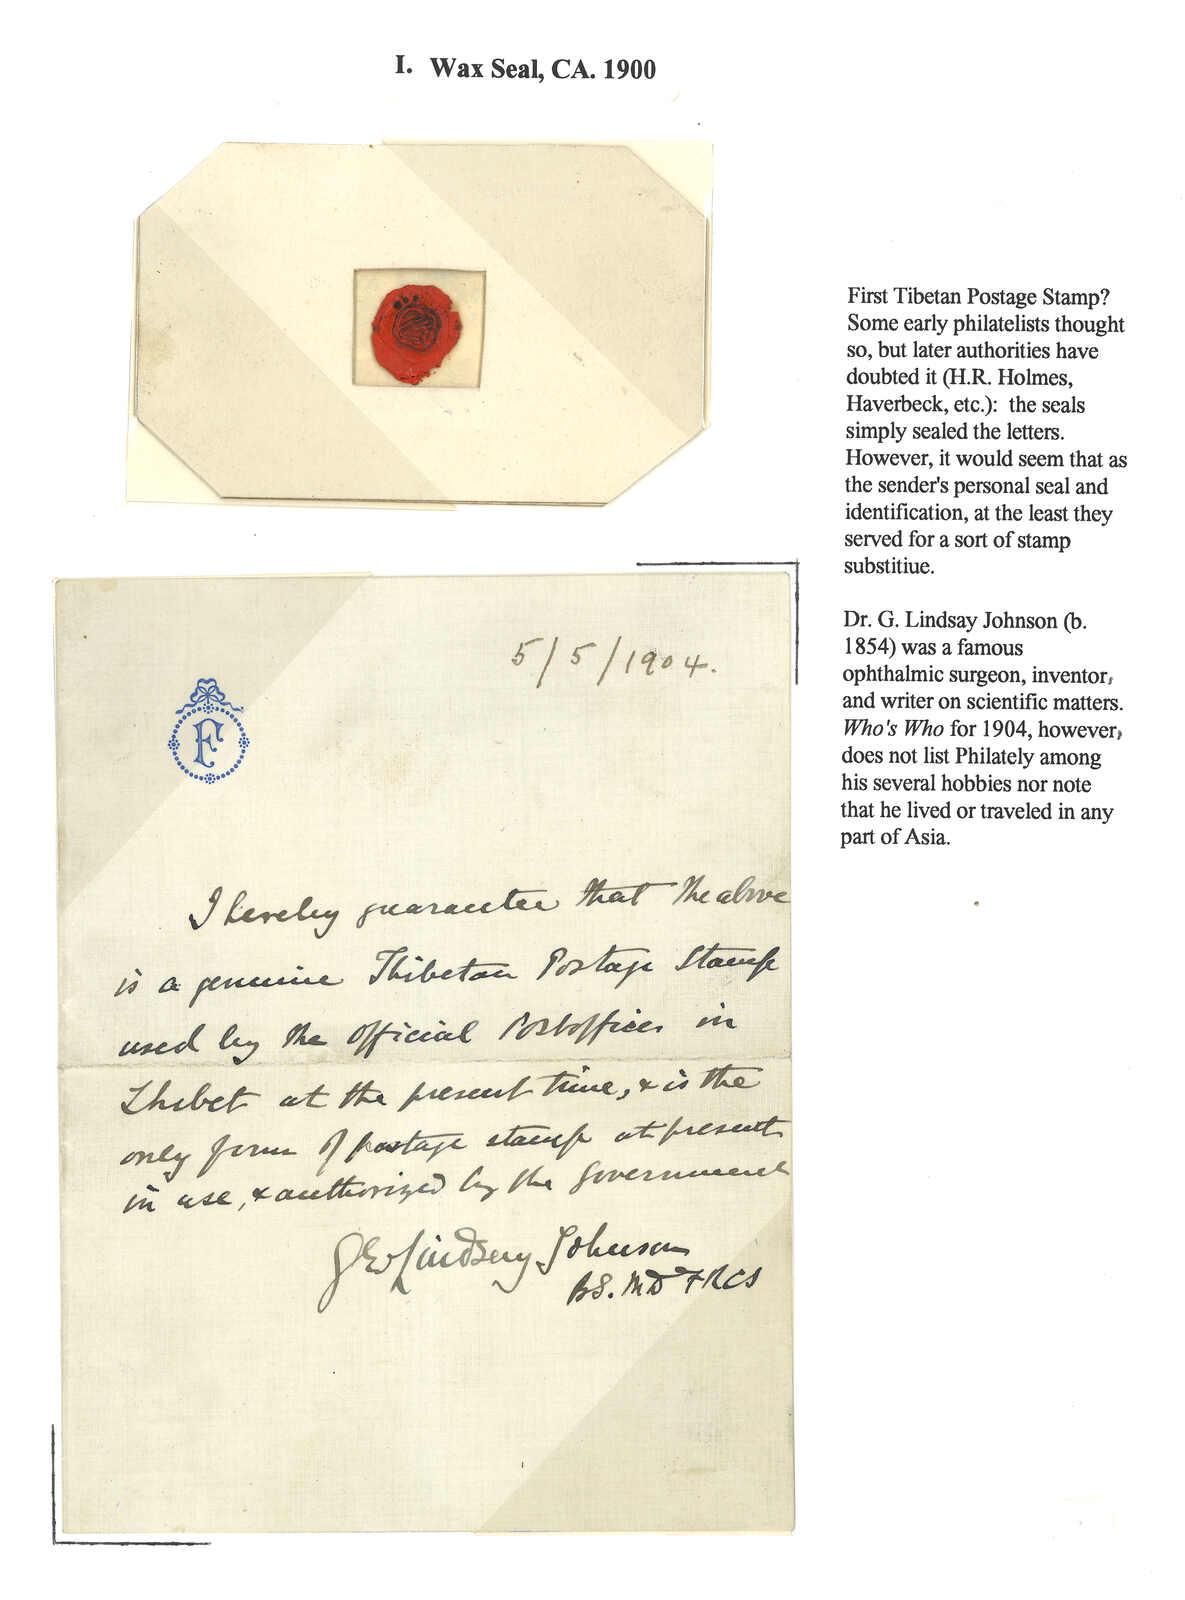 I. Wax Seal, CA. 1900
First Tibetan Postage Stamp?
Some early philatelists thought
so, but later authorities have
doubted it (H.R. Holmes,
Haverbeck, etc.): the seals
simply sealed the letters.
However, it would seem that as
the sender's personal seal and
identification, at the least they
served for a sort of stamp
substitiue.
Dr. G. Lindsay Johnson (b.
1854) was a famous
ophthalmic surgeon, inventor,
and writer on scientific matters.
Who's Who for 1904, however,
does not list Philately among
his several hobbies nor note
that he lived or traveled in any
part of Asia.
5/5/1904.
F
I hereby guarantee that the above
is a genuine Thibetan Postage Stamp
used by the official Postoffices in
Thibet at the present time, & is the
only form of postage stamp at present
in use, & authorized by the Government
G Lindsay Johnson
BS. MD FRCS